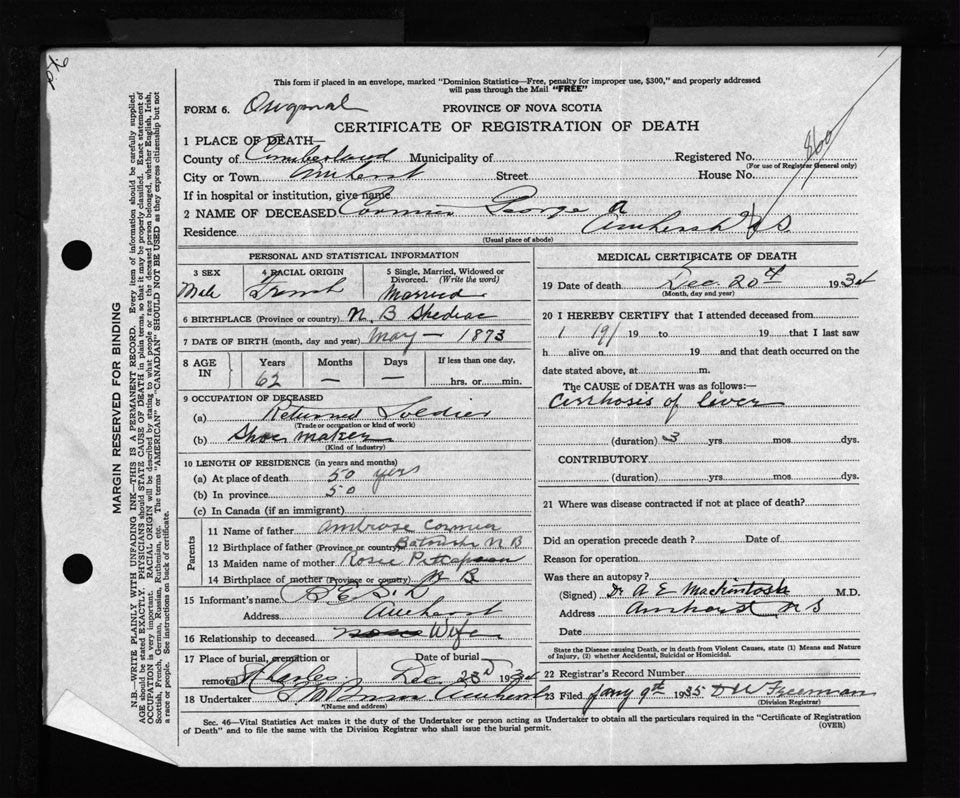 This form if placed in an envelope, marked "Dominion Statistics—Free, penalty for improper use, $300," and properly addressed
will pass through the Mail "FREE"
FORM 6. Original PROVINCE OF NOVA SCOTIA
CERTIFICATE OF REGISTRATION OF DEATH
1 PLACE OF DEATH—
County of Cumberland Municipality of Registered No. 860
(For use of Registrar General only)
City or Town Amherst Street House No.
If in hospital or institution, give name
2 NAME OF DECEASED Cormier George A
Residence Amherst N.S.
(Usual place of abode)
PERSONAL AND STATISTICAL INFORMATION
3 SEX 4 RACIAL ORIGIN 5 Single, Married, Widowed or
Divorced. (Write the word)
Male French Married
6 BIRTHPLACE (Province or country) N. B Shediac
7 DATE OF BIRTH (month, day and year) May — 1873
8 AGE IN Years Months Days If less than one day,
62 — — hrs. or min.
9 OCCUPATION OF DECEASED
(a) Returned Soldier
(Trade or occupation or kind of work)
(b) Shoe maker
(Kind of industry)
10 LENGTH OF RESIDENCE (in years and months)
(a) At place of death 50 yers
(b) In province 50
(c) In Canada (if an immigrant)
Parents
11 Name of father Ambrose Cormier
12 Birthplace of father (Province or country) N B
13 Maiden name of mother Rosie
14 Birthplace of mother (Province or country) N B
15 Informant's name
Address Amherst
16 Relationship to deceased Wife
17 Place of burial, cremation or Date of burial
removal Dec 23 1934
18 Undertaker Amherst
(Name and address)
MEDICAL CERTIFICATE OF DEATH
19 Date of death Dec. 20th 1934
(Month, day and year)
20 I HEREBY CERTIFY that I attended deceased from
19 to 19 that I last saw
h alive on 19 and that death occurred on the
date stated above, at m.
The CAUSE of DEATH was as follows:—
Cirrhosis of liver
(duration) 3 yrs. mos. dys.
CONTRIBUTORY
(duration) yrs. mos. dys.
21 Where was disease contracted if not at place of death?
Did an operation precede death? Date of
Reason for operation
Was there an autopsy?
(Signed) Dr A E Mackintosh M.D.
Address Amherst N S
Date
State the Disease causing Death, or in death from Violent Causes, state (1) Means and Nature
of Injury, (2) whether Accidental, Suicidal or Homicidal.
22 Registrar's Record Number
23 Filed Jany 9th 1935 Freeman
(Division Registrar)
Sec. 46—Vital Statistics Act makes it the duty of the Undertaker or person acting as Undertaker to obtain all the particulars required in the "Certificate of Registration
of Death" and to file the same with the Division Registrar who shall issue the burial permit. (OVER)
MARGIN RESERVED FOR BINDING
N.B.—WRITE PLAINLY WITH UNFADING INK—THIS IS A PERMANENT RECORD. Every item of information should be carefully supplied.
AGE should be stated EXACTLY. PHYSICIANS should STATE CAUSE OF DEATH in plain terms, so that it may be properly classified. Exact statement of
OCCUPATION is very important. RACIAL ORIGIN will be described by stating to what people or race the deceased person belonged, whether English, Irish,
Scottish, French, German, Russian, Ruthenian, etc. The terms "AMERICAN" or "CANADIAN" SHOULD NOT BE USED as they express citizenship but not
a race or people. See instructions on back of certificate.